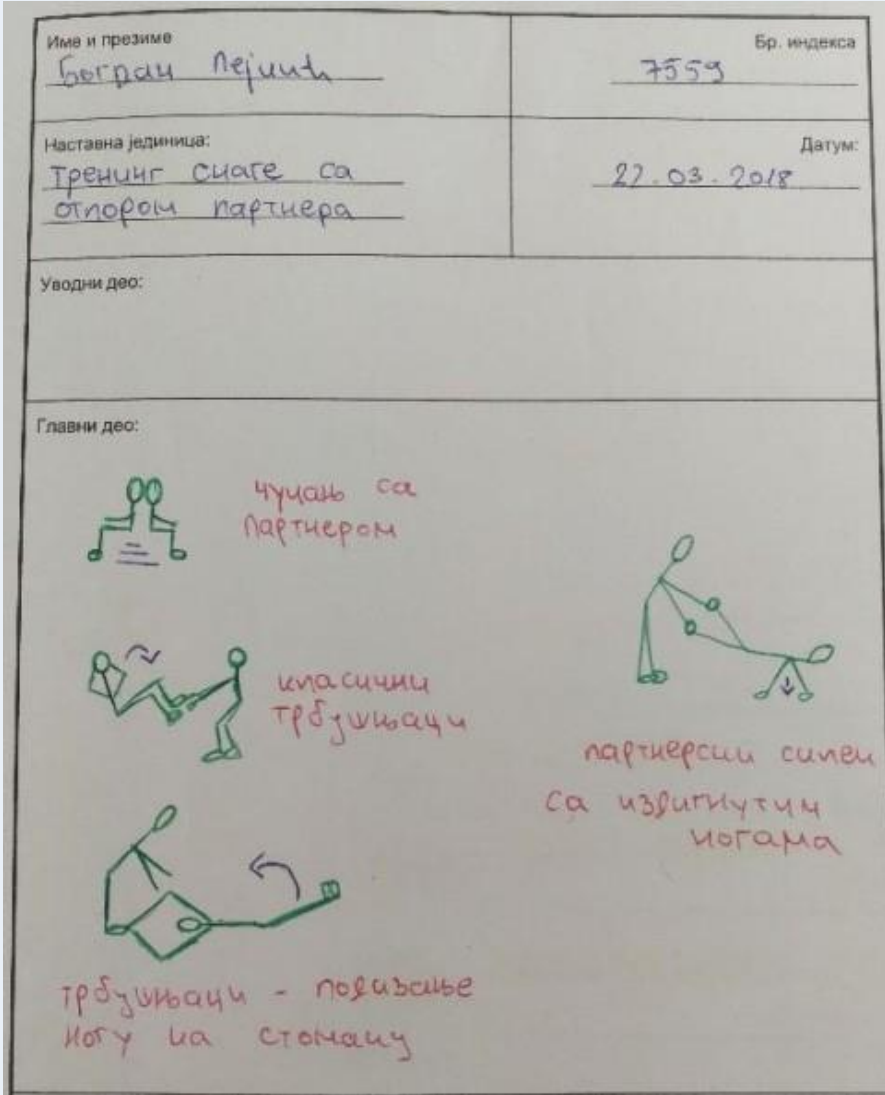 Име и презиме
Богдан Пејчић
Бр. индекса
7559
Наставна јединица:
Тренинг снаге са
отпором партнера
Датум:
22.03.2018
Уводни део:
Главни део:
чучањ са
партнером
класични
трбушњаци
партнерски склек
са издигнутим
ногама
трбушњаци - подизање
ногу на стомаку